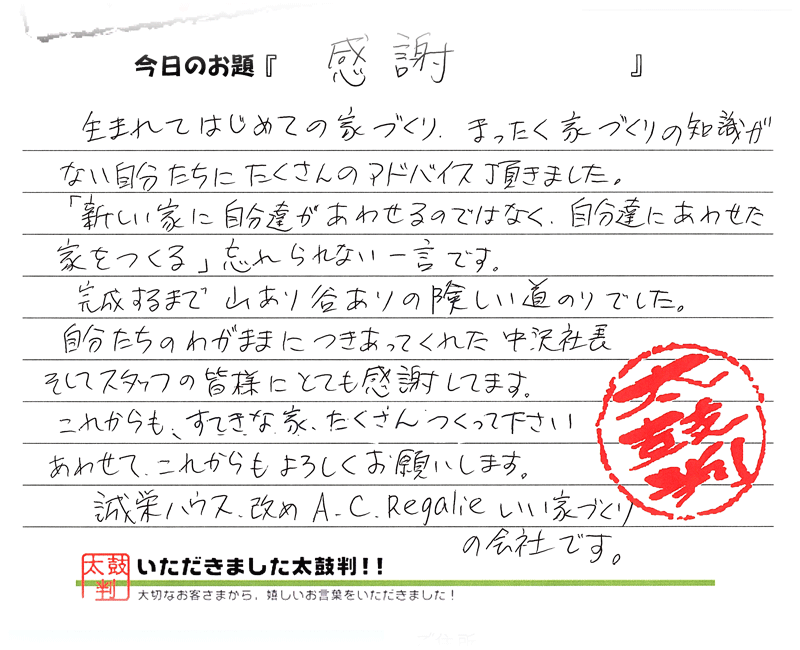 今日のお題『 感謝 』
生まれてはじめての家づくり、まったく家づくりの知識が
ない自分たちにたくさんのアドバイス頂きました。
「新しい家に自分達があわせるのではなく、自分達にあわせた
家をつくる」忘れられない一言です。
完成するまで山あり谷ありの険しい道のりでした。
自分たちのわがままにつきあってくれた中沢社長
そしてスタッフの皆様にとても感謝してます。
これからも、すてきな家、たくさんつくって下さい
あわせて、これからもよろしくお願いします。
誠栄ハウス、改めA.C.Regalieいい家づくり
の会社です。
太鼓判
太鼓判
いただきました太鼓判!!
大切なお客さまから、嬉しいお言葉をいただきました!